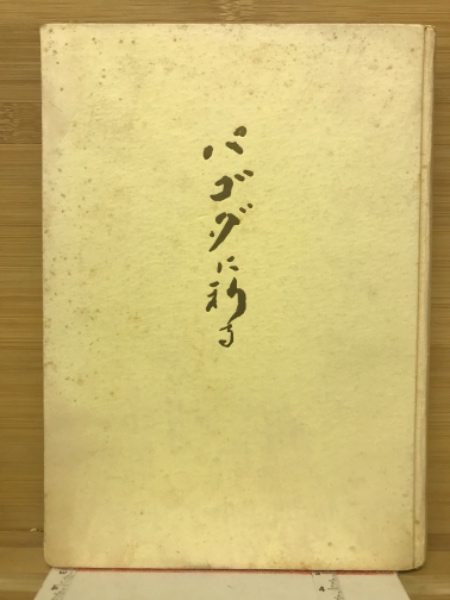 パゴダに祈る